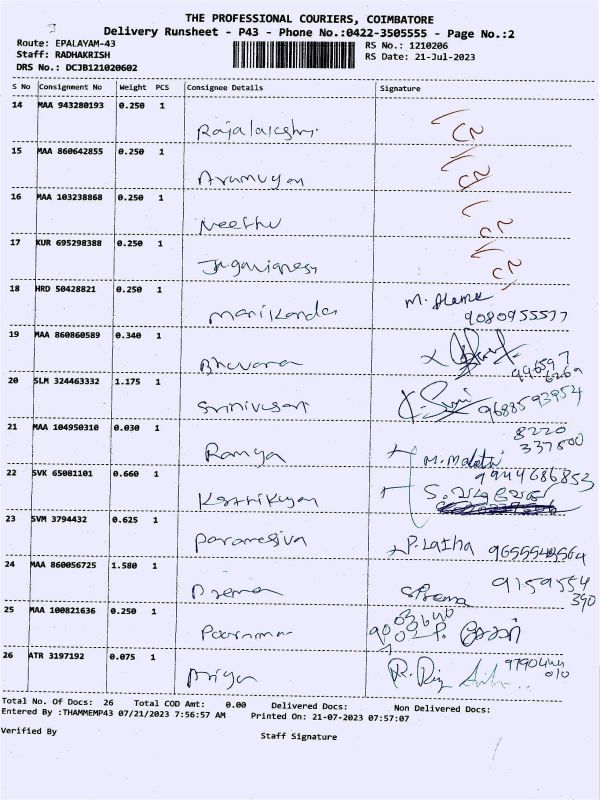 THE PROFESSIONAL COURIERS, COIMBATORE
Delivery Runsheet - P43 - Phone No.:0422-3505555 - Page No.:2
Route: EPALAYAM-43 RS No.: 1210206
Staff: RADHAKRISH RS Date: 21-Jul-2023
DRS No.: DCJB121020602
S No Consignment No Weight PCS Consignee Details Signature
14 MAA 943280193 0.250 1
Rajalakshmi
15 MAA 860642855 0.250 1
Arumugam
16 MAA 103238868 0.250 1
Neethu
17 KUR 695298388 0.250 1
18 HRD 50428821 0.250 1
Manikanda M.
9080955577
19 MAA 860860589 0.340 1
Bhuvana 996597
6269
20 SLM 324463332 1.175 1
Srinivasan 9688593954
21 MAA 104950310 0.030 1 8220
337500
Ramya M. Malathi
22 SVK 65081101 0.660 1 9944686853
Karthikeyan S.
23 SVM 3794432 0.625 1
Paramesiva P. Latha
24 MAA 860056725 1.580 1 9159554
390
Prema Prema
25 MAA 100821636 0.250 1
Poornima P.
26 ATR 3197192 0.075 1
Priya R.
Total No. Of Docs: 26 Total COD Amt: 0.00 Delivered Docs: Non Delivered Docs:
Entered By :THAMMEMP43 07/21/2023 7:56:57 AM Printed On: 21-07-2023 07:57:07
Verified By Staff Signature